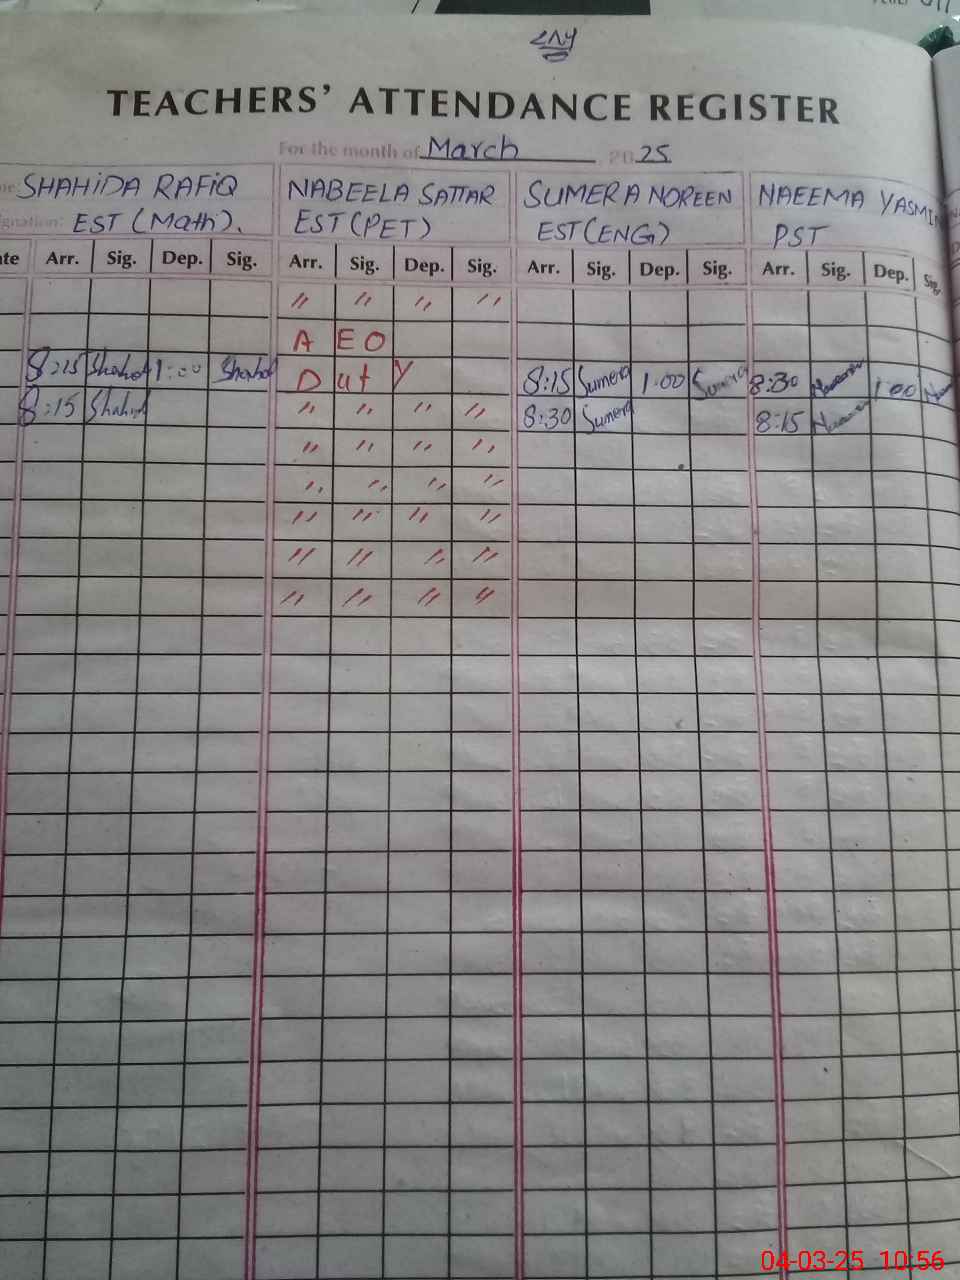 TEACHERS' ATTENDANCE REGISTER
For the month of March 2025
SHAHiDA RAFiQ NABEELA SATTAR SUMERA NOREEN NAEEMA YASMIN
ignation: EST (Math). EST (PET) EST (ENG) PST
ate Arr. Sig. Dep. Sig. Arr. Sig. Dep. Sig. Arr. Sig. Dep. Sig. Arr. Sig. Dep. Sig.
" " " "
A E O
8:15 Shahid 1:00 Shahid D ut y 8:15 Sumera 1:00 Sumera 8:30 1:00
8:15 Shahid " " " " 8:30 Sumera 8:15
" " " "
" " " "
" " " "
" " " "
" " " "
04-03-25 10:56